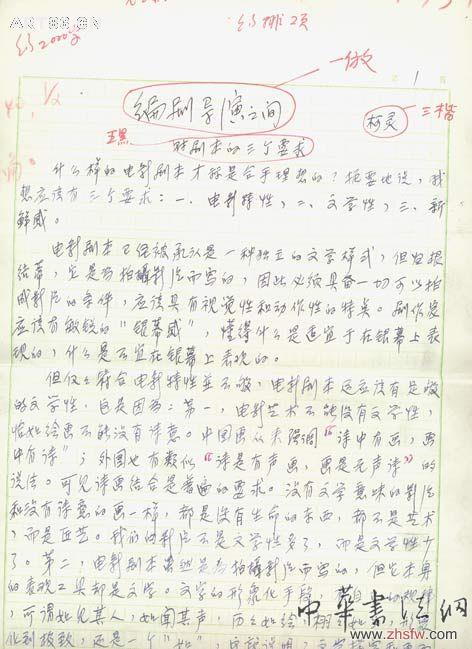 ART88.CN
约2000字
约排2页
一做
第1页
编剧导演之间
柯灵
三楷
对剧本的三个要求
什么样的电影剧本才称是合乎理想的？扼要地说，我
想应该有三个要求：一、电影特性，二、文学性，三、新
鲜感。
电影剧本已经被承认是一种独立的文学样式，但归根
结蒂，它是为拍摄影片而写的，因此必须具备一切可以拍
成影片的条件，应该具有视觉性和动作性的特点。剧作家
应该有敏锐的“银幕感”，懂得什么是适宜于在银幕上表
现的，什么是不宜在银幕上表现的。
但仅仅符合电影特性并不够，电影剧本还应该有足够
的文学性，这是因为：第一，电影艺术不能没有文学性，
恰如绘画不能没有诗意。中国画从来强调“诗中有画，画
中有诗”；外国也有类似“诗是有声画，画是无声诗”的
说法。可见诗画结合是普遍的要求。没有文学意味的影片
和没有诗意的画一样，都是没有生命的东西，都不是艺术
，而是匠艺。我们的影片不是文学性多了，而是文学性少
了。第二，电影剧本虽然是为拍摄影片而写的，但它本身
的表现工具却是文字。文字的形象化手段，
可谓如见其人，如闻其声，
还是一个“如”，这就说明，文学
中華書法網
www.zhsfw.com